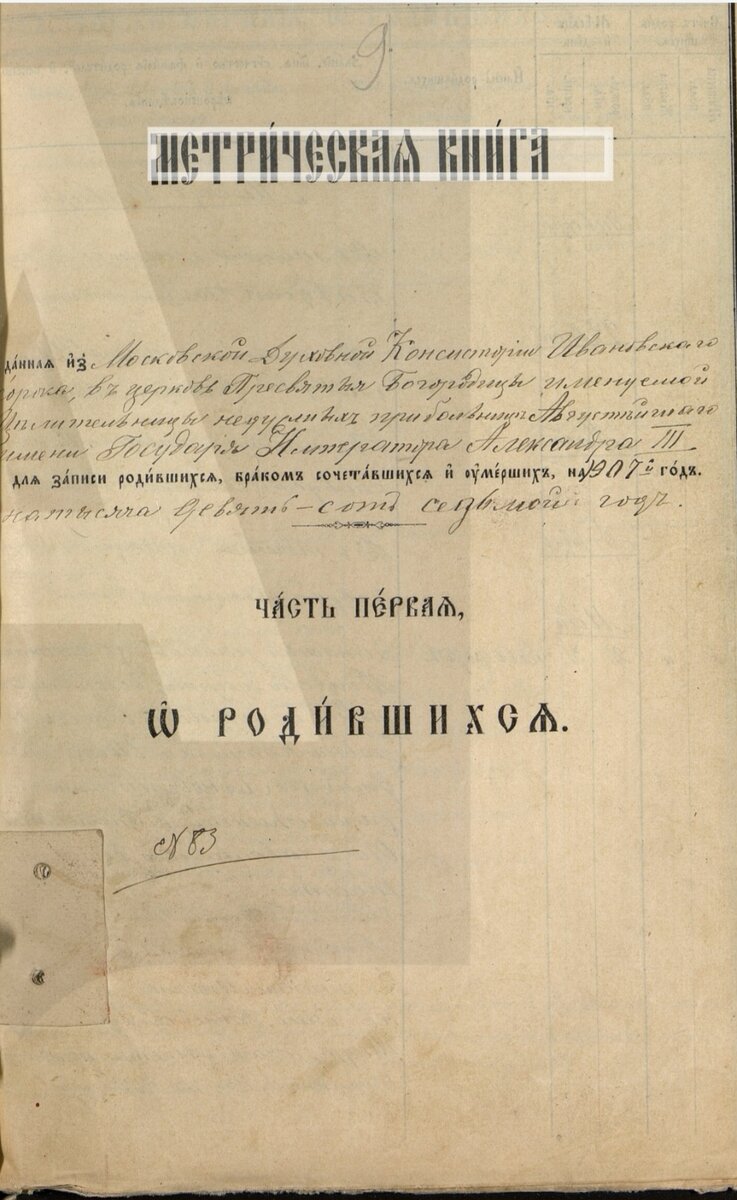 9
МЕТРИ́ЧЕСКАЯ КНИ́ГА
да́нная и҆з̾ Московской Духовной Консисторіи Ивановскаго
сорока, въ церковь Пресвятыя Богородицы именуемой
Цѣлительницы недужныхъ при больницѣ Августѣйшаго
имени Государя Императора Александра III
для за́писи роди́вшихся, бра́комъ сочета́вшихся и҆ оу҆ме́ршихъ, на 1907й го́дъ.
на тысяча девять-сотъ седьмой годъ.
ЧА́СТЬ ПЕ́РВАЯ,
Ѡ҆ РОДИ́ВШИХСЯ.
N 83